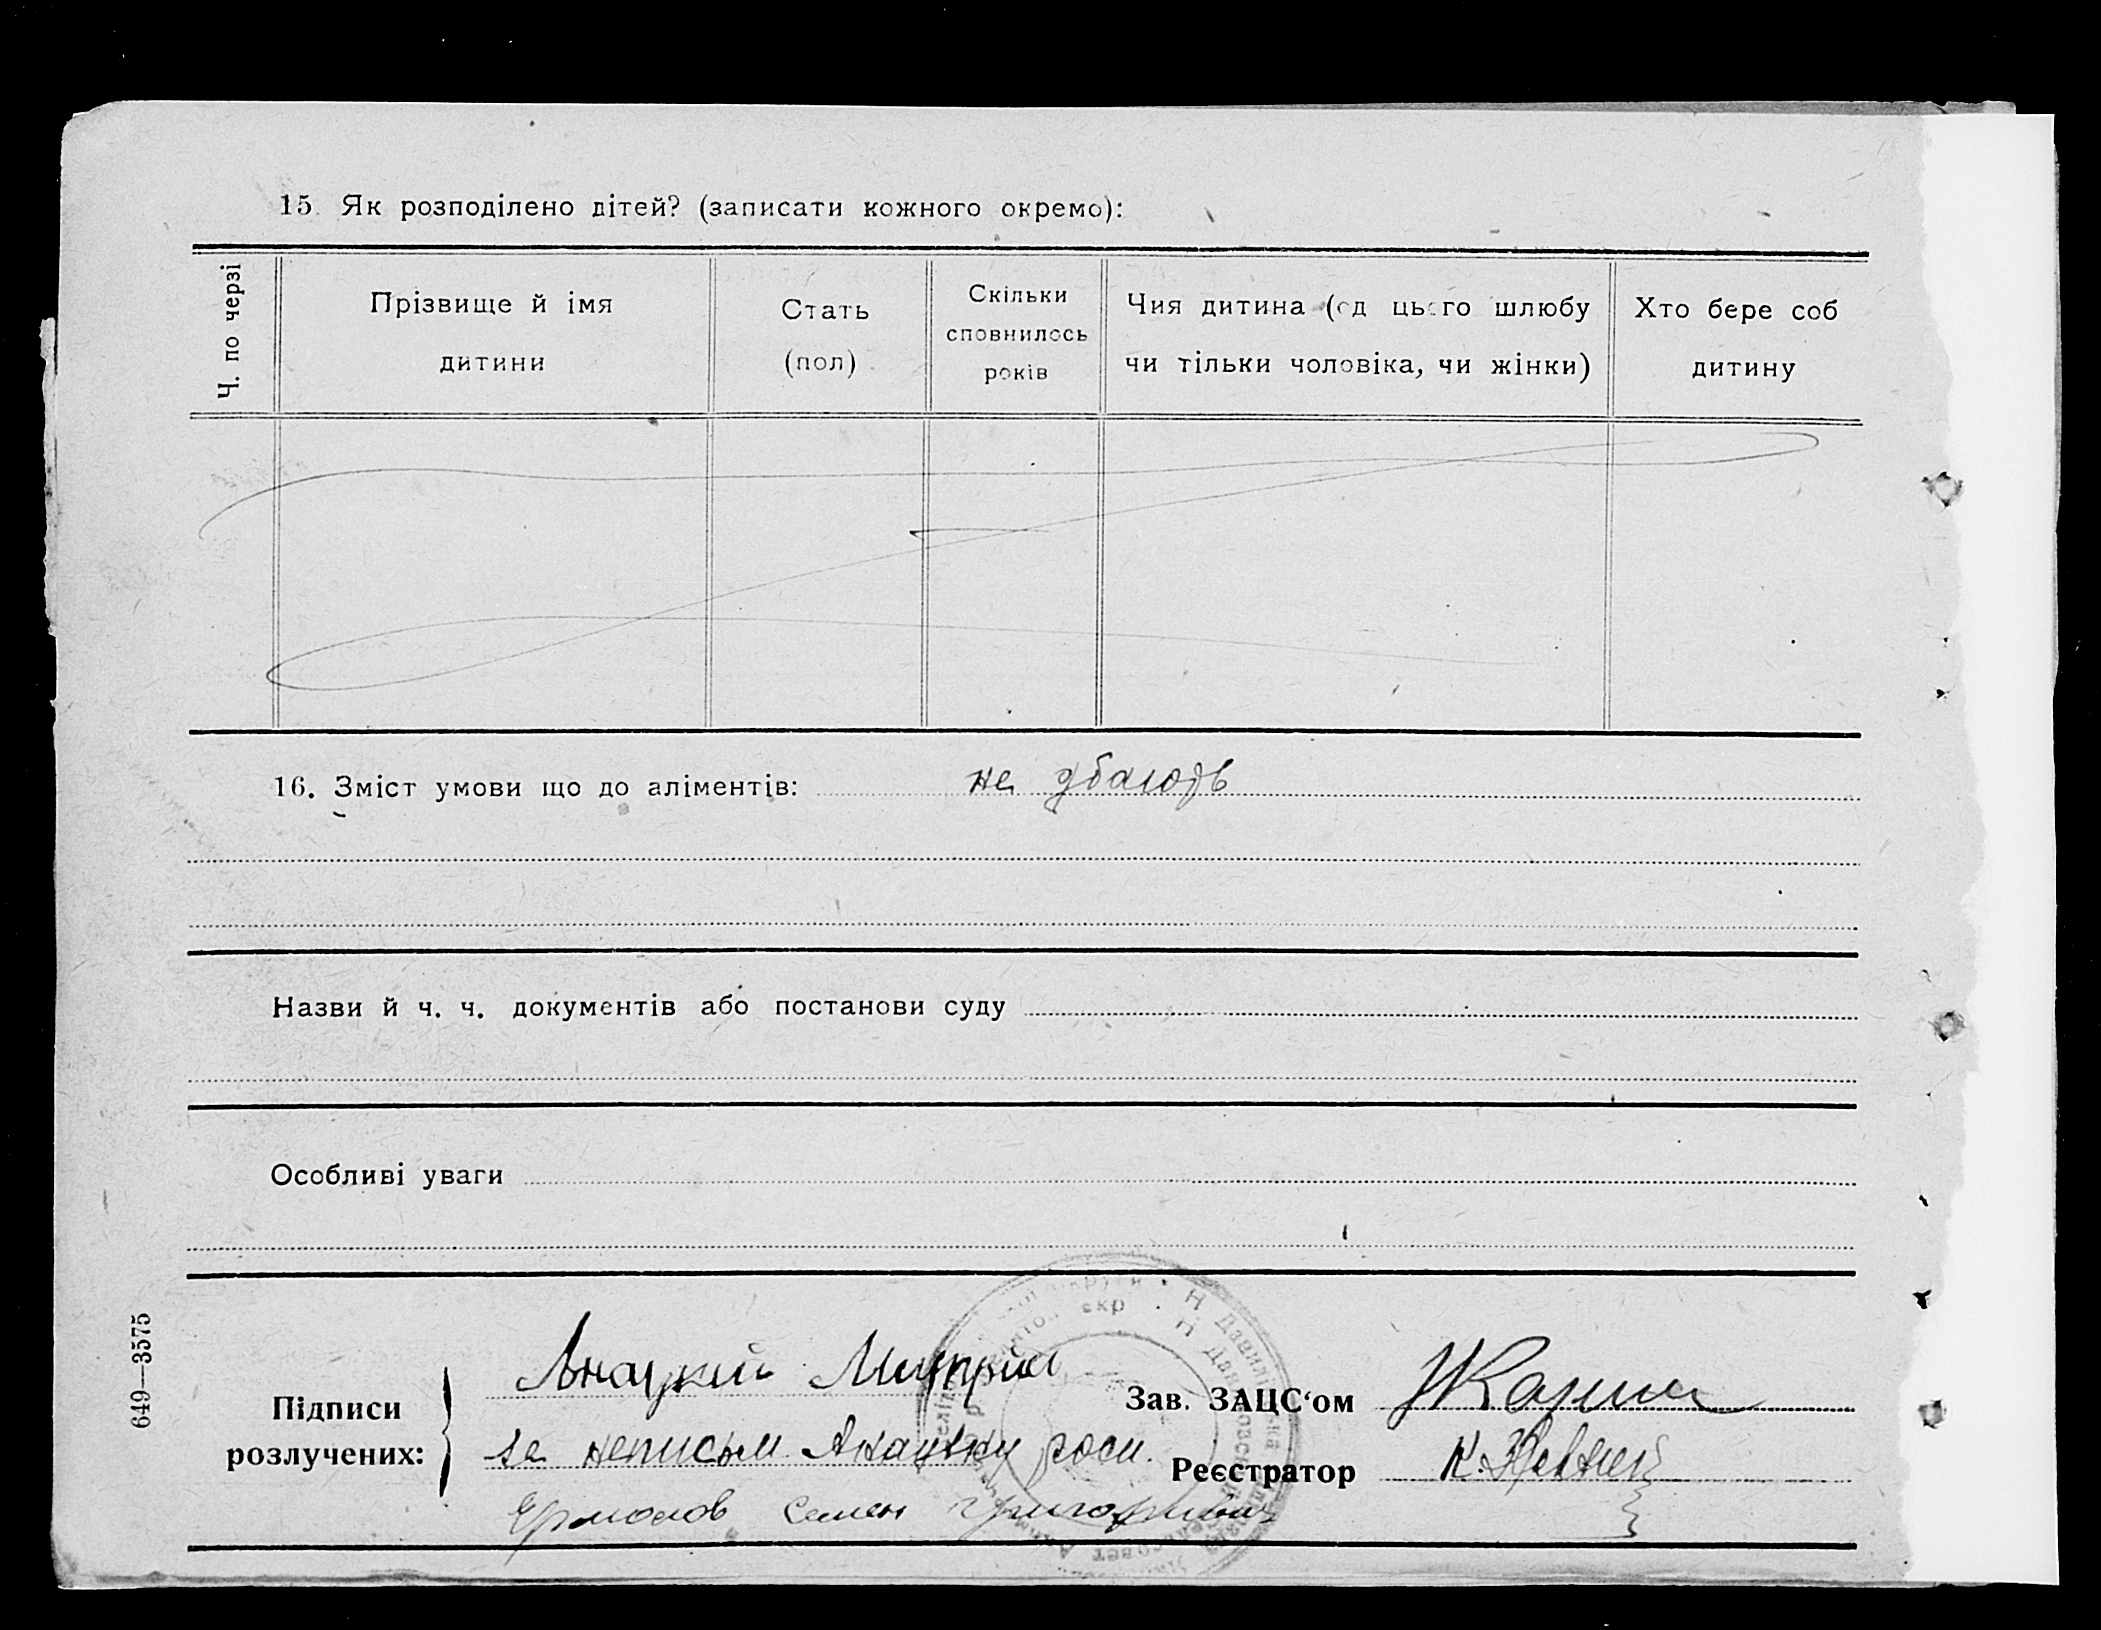 15. Як розподілено дітей? (записати кожного окремо):
Ч. по черзі
Прізвище й імя
дитини
Стать
(пол)
Скільки
сповнилось
років
Чия дитина (од цього шлюбу
чи тільки чоловіка, чи жінки)
Хто бере соб
дитину
16. Зміст умови що до аліментів: не дбають
Назви й ч. ч. документів або постанови суду
Особливі уваги
649—3575
Підписи
розлучених:
Зав. ЗАЦС‘ом
за неписьм
Реєстратор
Ермолов Семен Григориевич